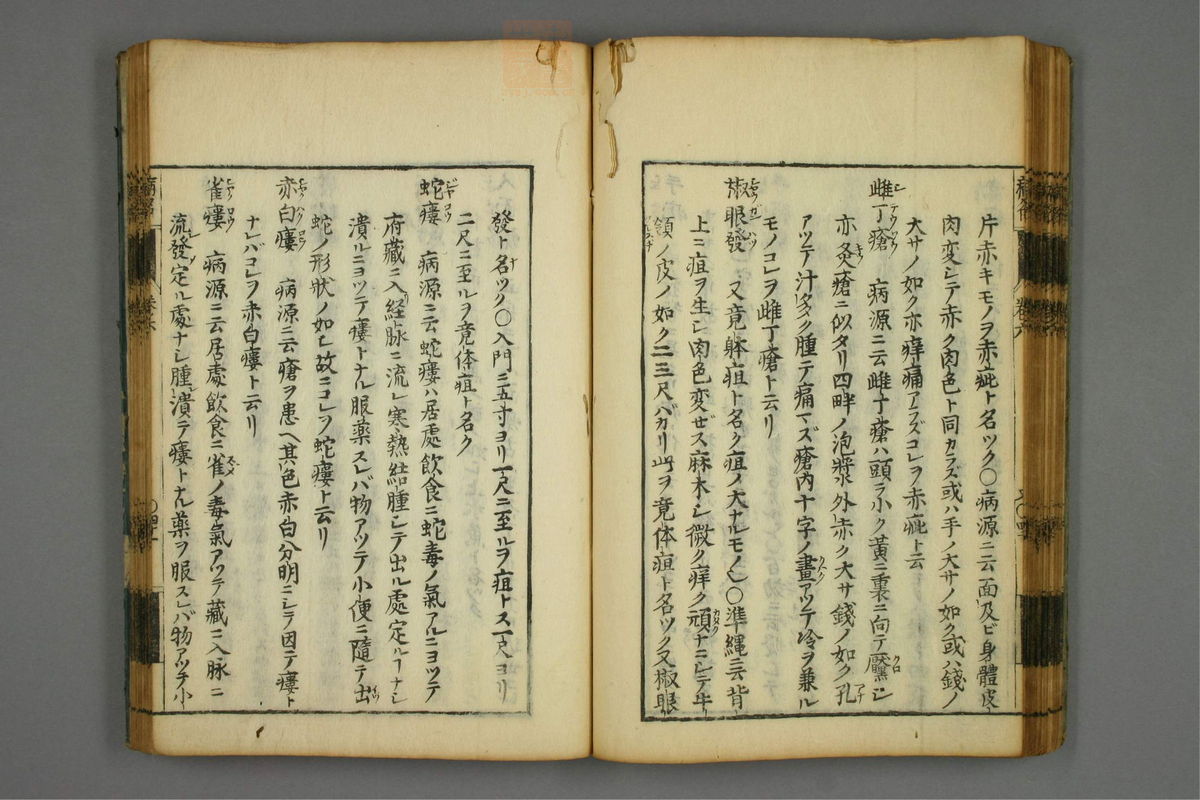 片赤キモノヲ赤疵ト名ツク〇病源ニ云面及ビ身體皮
肉変シテ赤ク肉色ト同カラズ或ハ手ノ大サノ如ク或ハ錢ノ
大サノ如ク亦痒痛アラズコレヲ赤疵ト云
雌丁瘡 病源ニ云雌丁瘡ハ頭ラ小ク黄ニ裏ニ向テ黶シ
亦灸瘡ニ似タリ四畔ノ泡漿外赤ク大サ錢ノ如ク孔
アツテ汁タク腫テ痛マズ瘡内十字ノ畫アツテ冷ヲ兼ル
モノコレヲ雌丁瘡ト云リ
椒眼發 又竟躰疽ト名ク疽ノ大ナルモノ〇準縄ニ云背
上ニ疽ヲ生シ肉色変ゼズ麻木シ微ク痒ク頑ナニシテ牛
領ノ皮ノ如ク二三尺バカリ此ヲ竟体疽ト名ツク又椒眼
發ト名ツク〇入門ニ五寸ヨリ一尺ニ至ルヲ疽トス一尺ヨリ
二尺ニ至ルヲ竟体疽ト名ク
蛇瘻 病源ニ云蛇瘻ハ居處飲食ニ蛇毒ノ氣アルニヨツテ
府藏ニ入経脉ニ流レ寒熱結腫シテ出ル處定ルナシ
潰ルニヨツテ瘻トナル服薬スレバ物アツテ小便ニ隨テ出
蛇ノ形状ノ如レ故ニコレヲ蛇瘻ト云リ
赤白瘻 病源ニ云瘡ヲ患ヘ其色赤白分明ニシテ因テ瘻ト
ナレバコレヲ赤白瘻ト云リ
雀瘻 病源ニ云居處飲食ニ雀ノ毒氣アツテ藏ニ入脉ニ
流發定ル處ナシ腫潰テ瘻トナル薬ヲ服スレバ物アツテ小